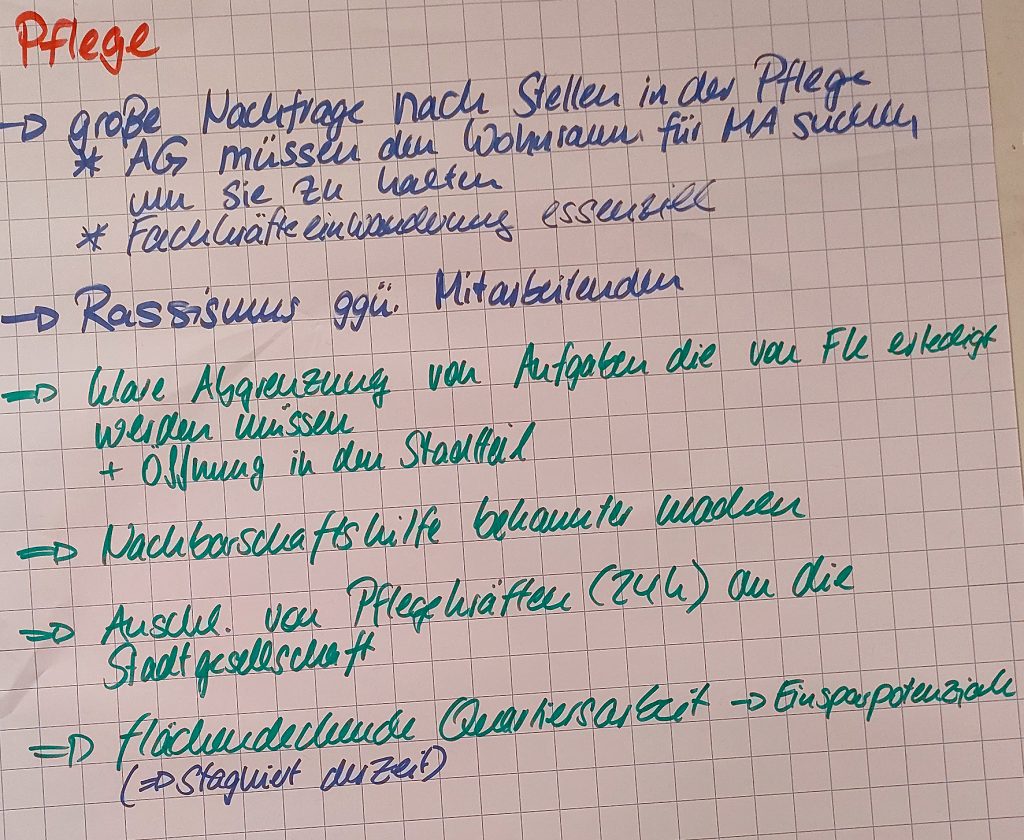 Pflege
→ große Nachfrage nach Stellen in der Pflege
* AG müssen den Wohnraum für MA suchen
um sie zu halten
* Fachkräfteeinwanderung essenziell
→ Rassismus ggü. Mitarbeitenden
⇒ klare Abgrenzung von Aufgaben die von FK erledigt
werden müssen
+ Öffnung in den Stadtteil
⇒ Nachbarschaftshilfe bekannter machen
⇒ Anschl. von Pflegekräften (24h) an die
Stadtgesellschaft
⇒ flächendeckende Quartiersarbeit → Einsparpotenziale
(⇒ Stagniert derzeit)